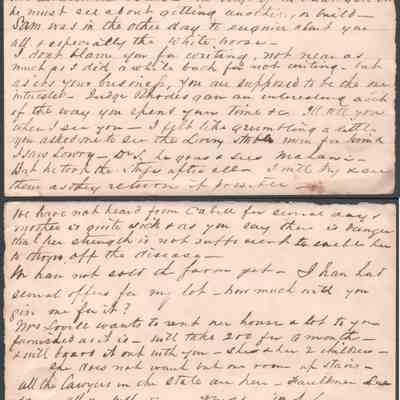 he must see about getting another, or build—
Sam was in the other day to enquire about you
all & especially the white horse—
I don't blame you for writing, not near as
much as I did a while back for not writing. but
as its your business, you are supposed to be the one
interested— Judge Rhodes gave an interesting acct
of the way you spent your time &c. I'll tell you
when I see you— I felt like grumbling a little
you asked me to see the Livery Stable man for
I saw Lowry— Dr S. he goes & sees
But he took the steps after all— I will try & see
them as they return if possible—
We have not heard from Cabell for several days
mother is quite sick & as you say there is danger
that her strength is not sufficient to enable her
to throw off the disease—
We han not sold the farm yet— I han had
several offers for my lot— how much will you
give me for it?
Mrs Lovell wants to rent her house & lot to you
furnished as it is— will take 200 for 9 month—
& will board it out with you— she & her 2 children—
she does not want but one room up stairs—
all the Lawyers in the State are her— Faulkner